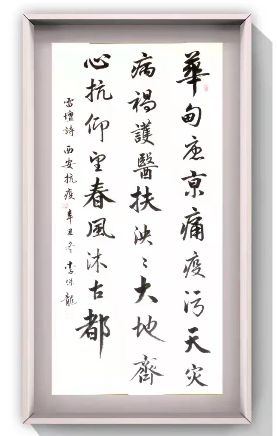 華甸京痛疫污天災
病禍護醫扶泱〻大地齊
心抗仰望春風沐古都
詩 西安抗疫 辛丑冬 李龍